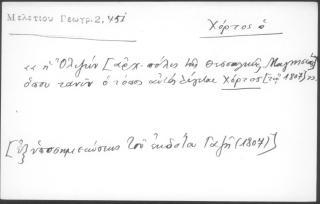 Μελετίου Γεωγρ. 2, 451
Χόρτος ὁ
"ἡ Ὀλιζών [ἀρχ. πόλις τῆς Θεσσαλικῆς Μαγνησίας]
ὅπου τανῦν ὁ τόπος αὐτὸς λέγεται Χόρτος [τῷ 1807]".
[Ἐξ ὑποσημειώσεως τοῦ ἐκδότου Γαζῆ (1807)]